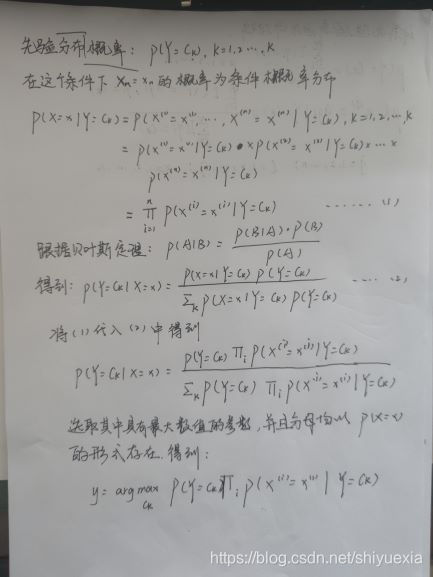 先验分布概率: P(Y=Ck), k=1,2,…,k
在这个条件下 Xn=xn 的概率为条件概率分布
P(X=x|Y=Ck)=P(X⁽¹⁾=x⁽¹⁾,…, X⁽ⁿ⁾=x⁽ⁿ⁾|Y=Ck), k=1,2,…,k
=P(X⁽¹⁾=x⁽¹⁾|Y=Ck)•×P(X⁽²⁾=x⁽²⁾|Y=Ck)×…×
P(X⁽ⁿ⁾=x⁽ⁿ⁾|Y=Ck)
=∏ⁿᵢ₌₁ P(X⁽ⁱ⁾=x⁽ⁱ⁾|Y=Ck) ……(1)
跟据贝叶斯定理: P(A|B)=P(B|A)·P(B)/P(A)
得到: P(Y=Ck|X=x)=P(X=x|Y=Ck)P(Y=Ck)/Σk P(X=x|Y=Ck)P(Y=Ck) ……(2)
将(1)代入(2)中得到
P(Y=Ck|X=x)=P(Y=Ck)∏ᵢP(X⁽ⁱ⁾=x⁽ⁱ⁾|Y=Ck)/Σk P(Y=Ck)∏ᵢP(X⁽ⁱ⁾=x⁽ⁱ⁾|Y=Ck)
选取其中具有最大数值的参数,并且分母均以P(X=x)
的形式存在.得到:
y=argmax Ck P(Y=Ck)∏ᵢP(X⁽ⁱ⁾=x⁽ⁱ⁾|Y=Ck)
https://blog.csdn.net/shiyuexia